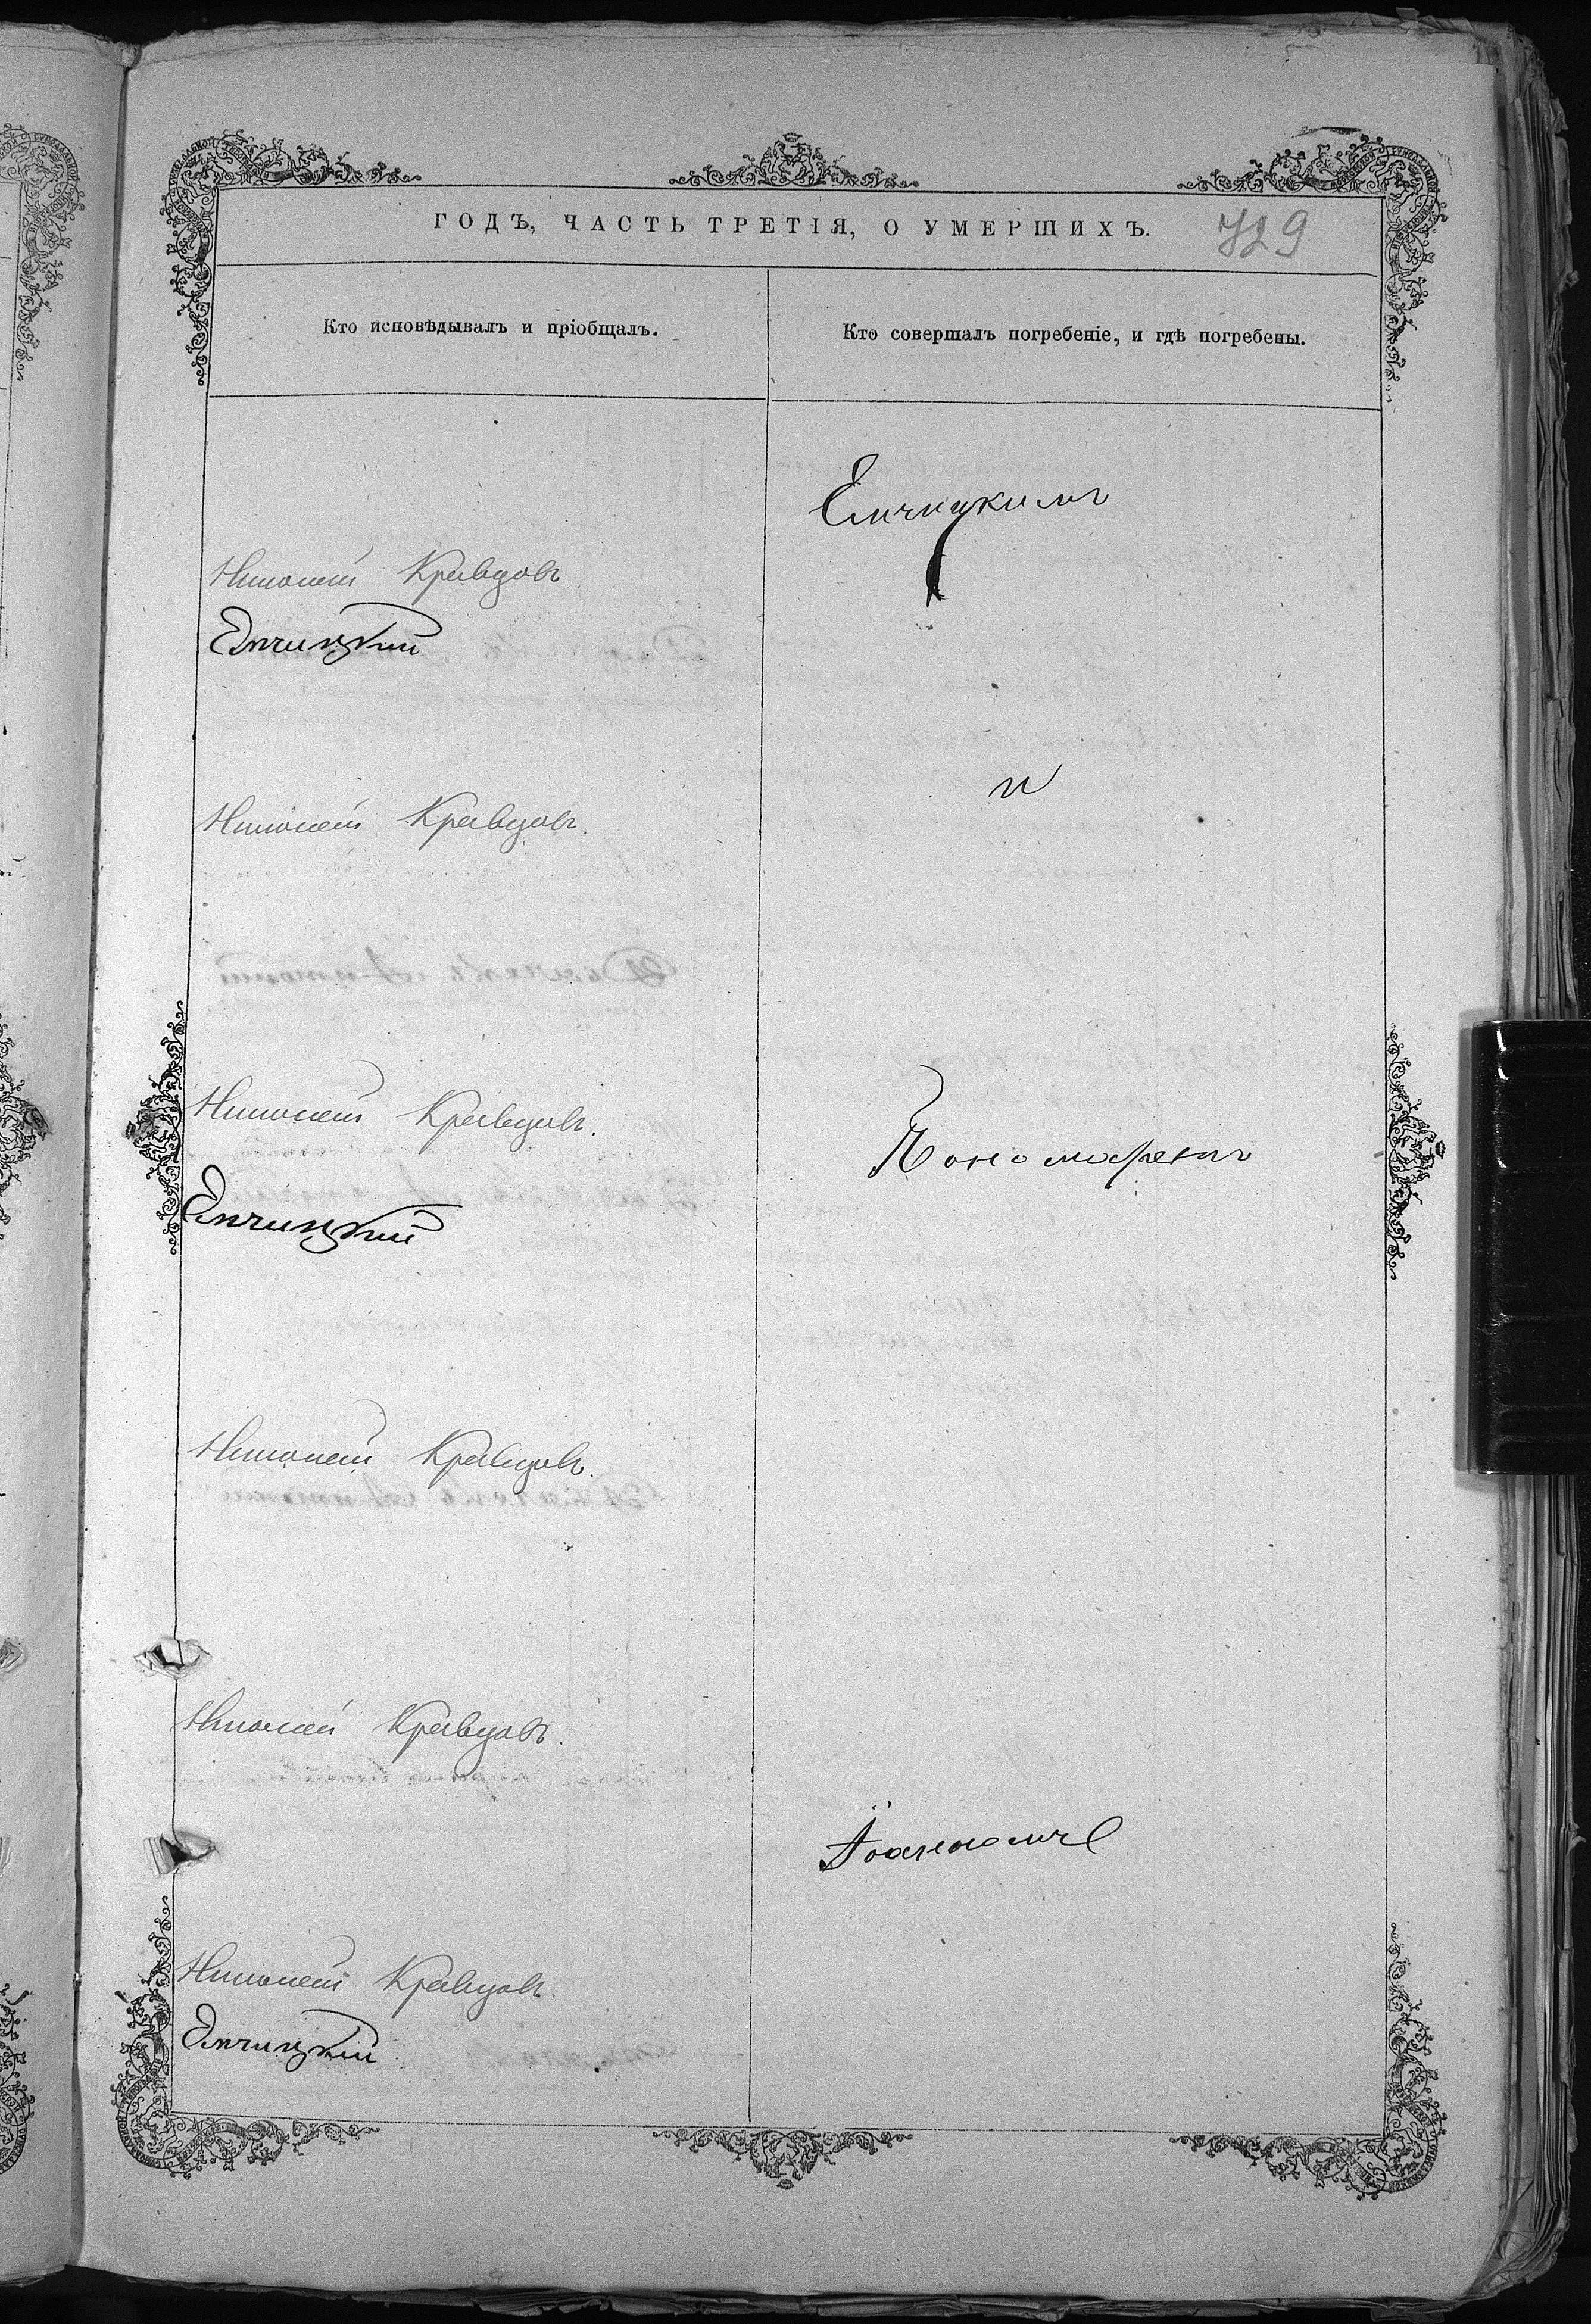 ГОДЪ, ЧАСТЬ ТРЕТІЯ, О УМЕРШИХЪ.
729
Кто исповѣдывалъ и пріобщалъ.
Кто совершалъ погребеніе, и гдѣ погребены.
Емчицкимъ
Николай Кравцовъ
Емчицкий
и
Николай Кравцовъ.
Николай Кравцовъ.
Пономаремъ
Емчицкий
Николай Кравцовъ.
Николай Кравцовъ.
Іоанномъ
Николай Кравцовъ.
Емчицкий